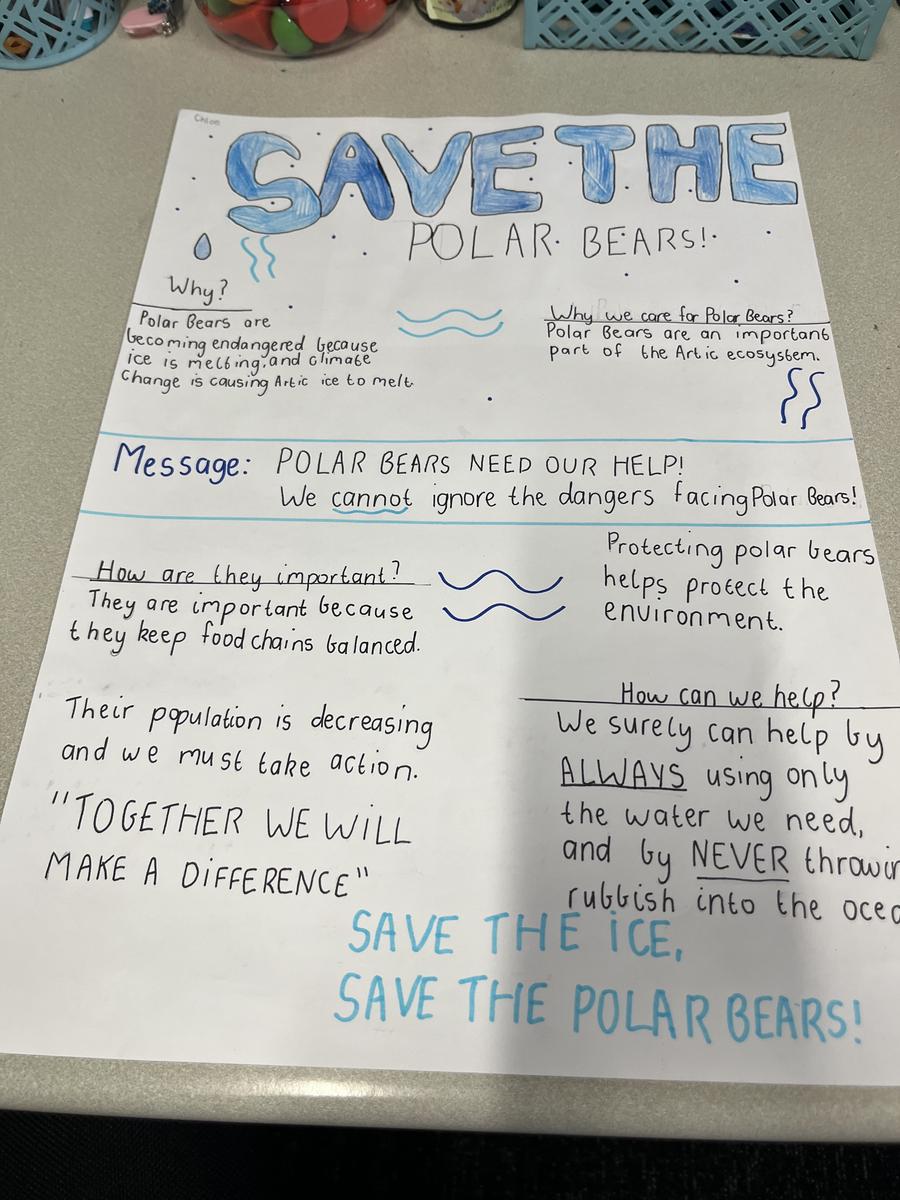 Chloe
SAVE THE
POLAR BEARS!
Why?
Polar Bears are
becoming endangered because
ice is melting, and climate
Change is causing Artic ice to melt.
Why we care for Polar Bears?
Polar Bears are an important
part of the Artic ecosystem.
Message: POLAR BEARS NEED OUR HELP!
We cannot ignore the dangers facing Polar Bears!
How are they important?
They are important because
they keep food chains balanced.
Protecting polar bears
helps protect the
environment.
Their population is decreasing
and we must take action.
"TOGETHER WE WiLL
MAKE A DiFFERENCE"
How can we help?
We surely can help by
ALWAYS using only
the water we need,
and by NEVER throwin
rubbish into the ocea
SAVE THE iCE,
SAVE THE POLAR BEARS!